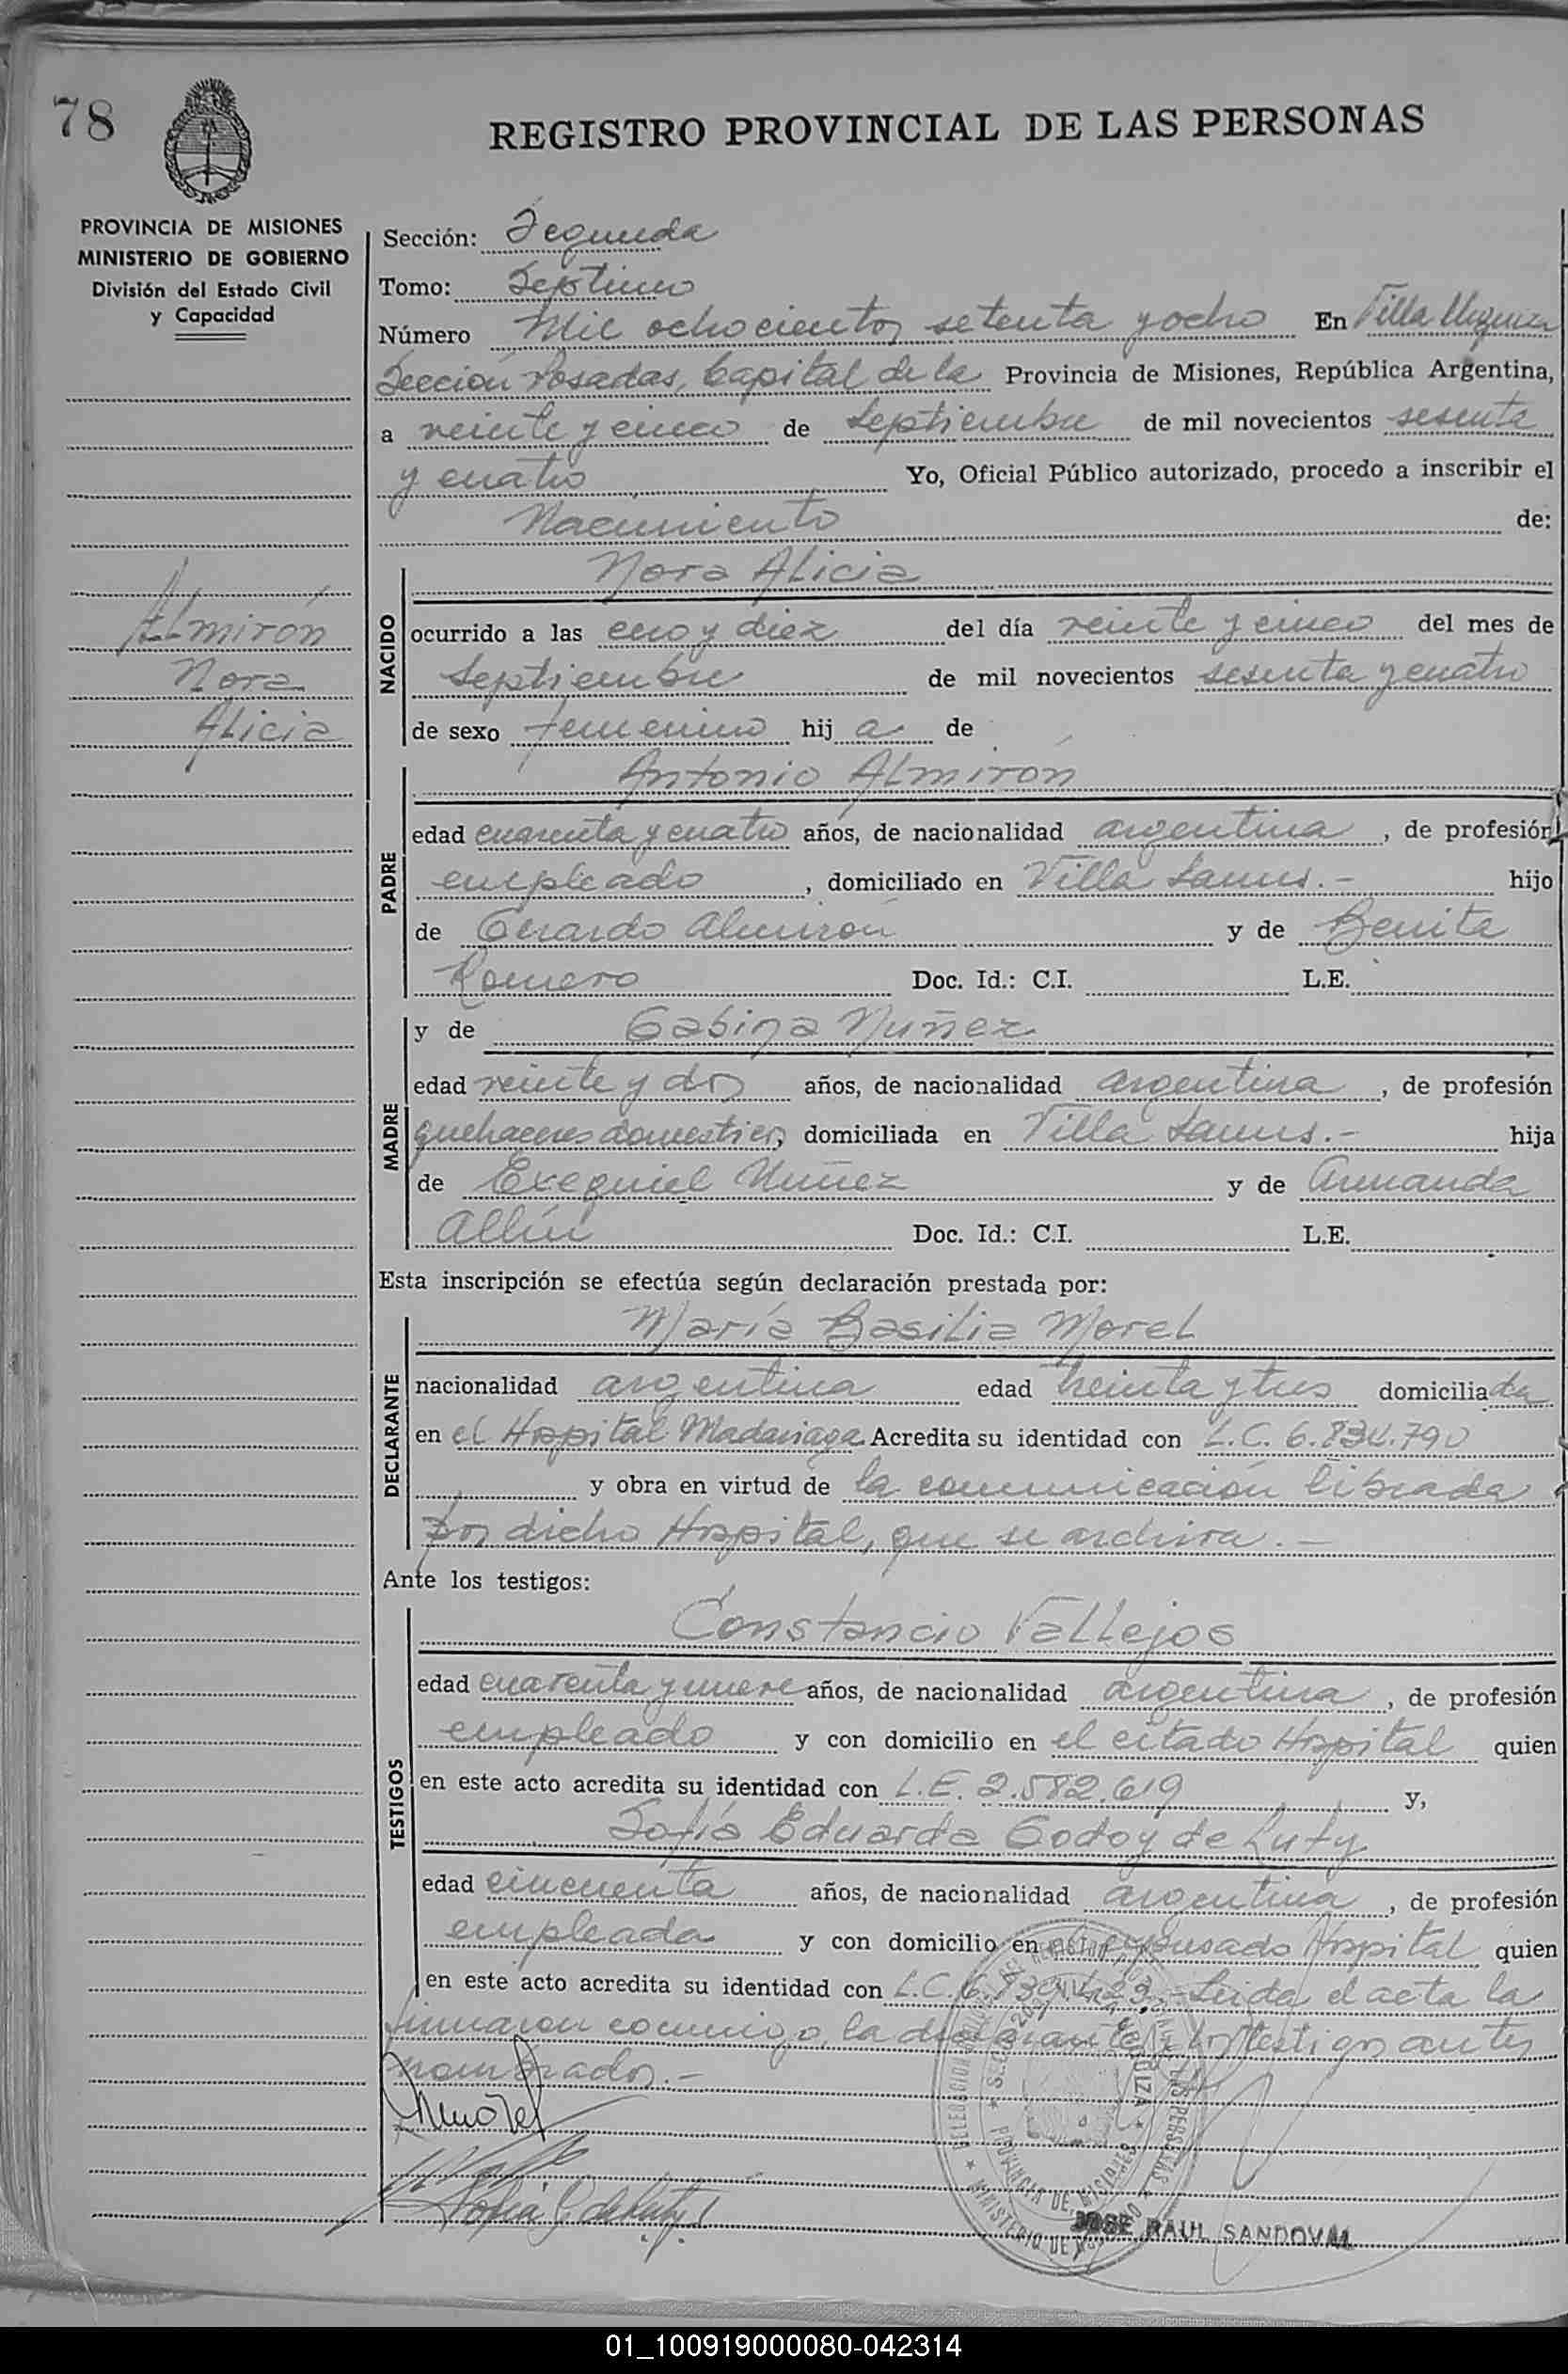 78
REGISTRO PROVINCIAL DE LAS PERSONAS
PROVINCIA DE MISIONES
MINISTERIO DE GOBIERNO
División del Estado Civil
y Capacidad
Almirón
Nora
Alicia
Sección: Segunda
Tomo: Septimo
Número Mil ochocientos setenta y ocho En Villa Urquiza
Sección Posadas, Capital de la Provincia de Misiones, República Argentina,
a veinte y cinco de Septiembre de mil novecientos sesenta
y cuatro Yo, Oficial Público autorizado, procedo a inscribir el
Nacimiento de:
NACIDO
Nora Alicia
ocurrido a las cero y diez del día veinte y cinco del mes de
Septiembre de mil novecientos sesenta y cuatro
de sexo femenino hij a de
PADRE
Antonio Almirón
edad cuarenta y cuatro años, de nacionalidad argentina, de profesión
empleado, domiciliado en Villa Lanus.- hijo
de Gerardo Almirón y de Benita
Romero Doc. Id.: C.I. L.E.
MADRE
y de Gabina Nuñez
edad veinte y dos años, de nacionalidad argentina, de profesión
quehaceres domesticos, domiciliada en Villa Lanus.- hija
de Exequiel Nuñez y de Armanda
Doc. Id.: C.I. L.E.
Esta inscripción se efectúa según declaración prestada por:
DECLARANTE
María Basilia Morel
nacionalidad argentina edad treinta y tres domiciliada
en el Hospital Madariaga Acredita su identidad con L.C. 6.834.790
y obra en virtud de la comunicación librada
por dicho Hospital, que se archiva.-
Ante los testigos:
TESTIGOS
Constancio Vallejos
edad cuarenta y nueve años, de nacionalidad argentina, de profesión
empleado y con domicilio en el citado Hospital quien
en este acto acredita su identidad con L.E. 2.582.619 y,
Sofía Eduarda Godoy de Luty
edad cincuenta años, de nacionalidad argentina, de profesión
empleada y con domicilio en el expresado Hospital quien
en este acto acredita su identidad con L.C. Leida el acta la
firmaron conmigo, la declarante y los testigos antes
nombrados.-
Morel
Sofía G de Luty
JOSE RAUL SANDOVAL
01_100919000080-042314